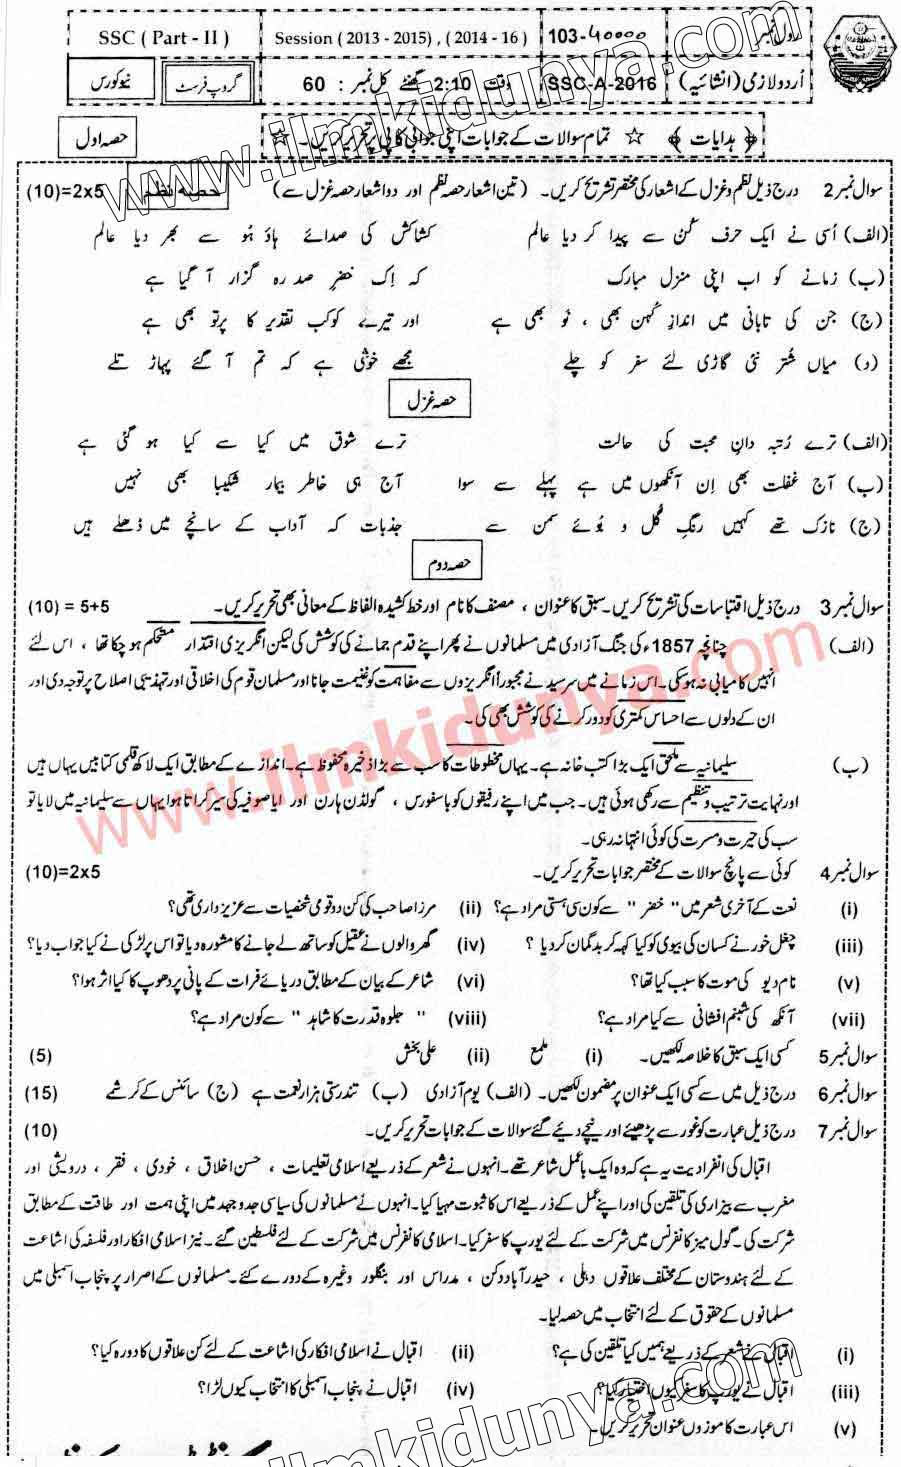 SSC ( Part - II ) Session ( 2013 - 2015) , ( 2014 - 16) 103-40000 رول نمبر
نیو کورس گروپ فرسٹ وقت 2:10 گھنٹے کل نمبر : 60 SSC-A-2016 اُردو لازمی (انشائیہ)
﴿ ہدایات ﴾ ☆ تمام سوالات کے جوابات اپنی جوابی کاپی پر تحریر کریں۔ ☆ حصہ اول
سوال نمبر 2 درج ذیل نظم و غزل کے اشعار کی مختصر تشریح کریں۔ (تین اشعار حصہ نظم اور دو اشعار حصہ غزل سے) حصہ نظم (10)=2x5
(الف) اُسی نے ایک حرف کُن سے پیدا کر دیا عالم کشاکش کی صدائے ہاؤ ہُو سے بھر دیا عالم
(ب) زمانے کو اب اپنی منزل مبارک کہ اِک خضرِ صد رہ گزار آ گیا ہے
(ج) جن کی تابانی میں اندازِ کُہن بھی ، نَو بھی ہے اور تیرے کوکبِ تقدیر کا پرتو بھی ہے
(د) میاں شُتر نئی گاڑی لئے سفر کو چلے مجھے خوشی ہے کہ تم آ گئے پہاڑ تلے
حصہ غزل
(الف) ترے رُتبہ دانِ محبت کی حالت ترے شوق میں کیا سے کیا ہو گئی ہے
(ب) آج غفلت بھی اِن آنکھوں میں ہے پہلے سے سوا آج ہی خاطرِ بیمار شکیبا بھی نہیں
(ج) نازک تھے کہیں رنگِ گُل و بُوئے سمن سے جذبات کہ آداب کے سانچے میں ڈھلے ہیں
حصہ دوم
سوال نمبر 3 درج ذیل اقتباسات کی تشریح کریں۔ سبق کا عنوان ، مصنف کا نام اور خط کشیدہ الفاظ کے معانی بھی تحریر کریں۔ (10) = 5+5
(الف) چنانچہ 1857ء کی جنگ آزادی میں مسلمانوں نے پھر اپنے قدم جمانے کی کوشش کی لیکن انگریزی اقتدار مستحکم ہو چکا تھا ، اس لئے
انہیں کامیابی نہ ہو سکی۔ اس زمانے میں سرسید نے مجبوراً انگریزوں سے مفاہمت کو غنیمت جانا اور مسلمان قوم کی اخلاقی اور تہذیبی اصلاح پر توجہ دی اور
ان کے دلوں سے احساس کمتری کو دور کرنے کی کوشش بھی کی۔
(ب) سلیمانیہ سے ملحق ایک بڑا کتب خانہ ہے۔ یہاں مخطوطات کا سب سے بڑا ذخیرہ محفوظ ہے۔ اندازے کے مطابق ایک لاکھ قلمی کتابیں یہاں ہیں
اور نہایت ترتیب و تنظیم سے رکھی ہوئی ہیں۔ جب میں اپنے رفیقوں کو باسفورس ، گولڈن ہارن اور ایاصوفیہ کی سیر کراتا ہوا یہاں سے سلیمانیہ میں لایا تو
سب کی حیرت و مسرت کی کوئی انتہا نہ رہی۔
سوال نمبر 4 کوئی سے پانچ سوالات کے مختصر جوابات تحریر کریں۔ (10)=2x5
(i) نعت کے آخری شعر میں " خضر " سے کون سی ہستی مراد ہے؟ (ii) مرزا صاحب کی کن دو قومی شخصیات سے عزیز داری تھی؟
(iii) چغل خور نے کسان کی بیوی کو کیا کہہ کر بدگمان کر دیا ؟ (iv) گھر والوں نے عقیل کو ساتھ لے جانے کا مشورہ دیا تو اس پر لڑکی نے کیا جواب دیا؟
(v) نام دیو کی موت کا سبب کیا تھا؟ (vi) شاعر کے بیان کے مطابق دریائے فرات کے پانی پر دھوپ کا کیا اثر ہوا؟
(vii) آنکھ کی شبنم افشانی سے کیا مراد ہے؟ (viii) " جلوہ قدرت کا شاہد " سے کون مراد ہے؟
سوال نمبر 5 کسی ایک سبق کا خلاصہ لکھیں۔ (i) ملمع (ii) علی بخش (5)
سوال نمبر 6 درج ذیل میں سے کسی ایک عنوان پر مضمون لکھیں۔ (الف) یوم آزادی (ب) تندرستی ہزار نعمت ہے (ج) سائنس کے کرشمے (15)
سوال نمبر 7 درج ذیل عبارت کو غور سے پڑھیئے اور نیچے دیئے گئے سوالات کے جوابات تحریر کریں۔ (10)
اقبال کی انفرادیت یہ ہے کہ وہ ایک باعمل شاعر تھے۔ انہوں نے شعر کے ذریعے اسلامی تعلیمات ، حسن اخلاق ، خودی ، فقر ، درویشی اور
مغرب سے بیزاری کی تلقین کی اور اپنے عمل کے ذریعے اس کا ثبوت مہیا کیا۔ انہوں نے مسلمانوں کی سیاسی جدوجہد میں اپنی ہمت اور طاقت کے مطابق
شرکت کی۔ گول میز کانفرنس میں شرکت کے لئے یورپ کا سفر کیا۔ اسلامی کانفرنس میں شرکت کے لئے فلسطین گئے۔ نیز اسلامی افکار اور فلسفہ کی اشاعت
کے لئے ہندوستان کے مختلف علاقوں دہلی ، حیدر آباد دکن ، مدراس اور بنگلور وغیرہ کے دورے کئے۔ مسلمانوں کے اصرار پر پنجاب اسمبلی میں
مسلمانوں کے حقوق کے لئے انتخاب میں حصہ لیا۔
(i) اقبال نے شعر کے ذریعے ہمیں کیا تلقین کی ہے؟ (ii) اقبال نے اسلامی افکار کی اشاعت کے لئے کن علاقوں کا دورہ کیا؟
(iii) اقبال نے یورپ کا سفر کیوں اختیار کیا؟ (iv) اقبال نے پنجاب اسمبلی کا انتخاب کیوں لڑا؟
(v) اس عبارت کا موزوں عنوان تحریر کریں۔
www.ilmkidunya.com
www.ilmkidunya.com
ilmkidunya.com